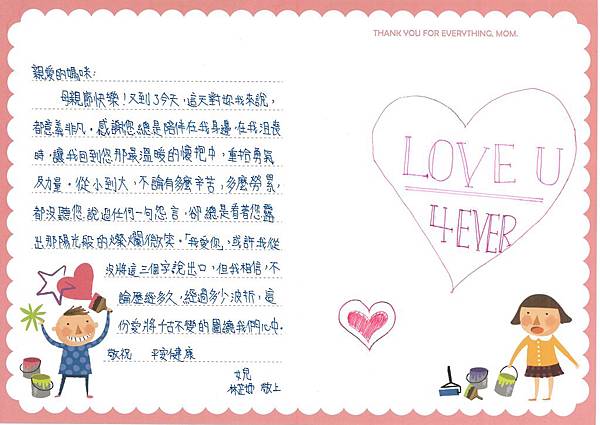 親愛的媽咪:
母親節快樂!又到了今天,這天對妳我來說,
都意義非凡。感謝您總是陪伴在我身邊,在我沮喪
時,讓我回到您那最溫暖的懷抱中,重拾勇氣
及力量。從小到大,不論有多麼辛苦,多麼勞累,
都沒聽您說過任何一句怨言,卻總是看著您露
出那陽光般的燦爛微笑。「我愛你」,或許我從
沒將這三個字說出口,但我相信,不
論歷經多久,經過多少波折,這
份愛將千古不變的圍繞我們心中。
敬祝 平安健康
女兒
敬上
THANK YOU FOR EVERYTHING, MOM.
LOVE U
4 EVER